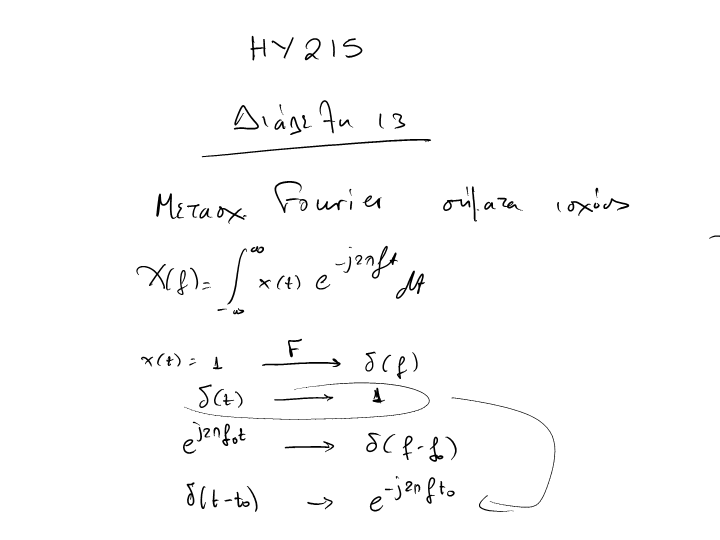 HY215
Διάλεξη 13
Μετασχ. Fourier σήματα ισχύος
X(f) = ∫_{-∞}^{∞} x(t) e^{-j2πft} dt
x(t) = 1 —F→ δ(f)
δ(t) → 1
e^{j2πf₀t} → δ(f-f₀)
δ(t-t₀) → e^{-j2πft₀}